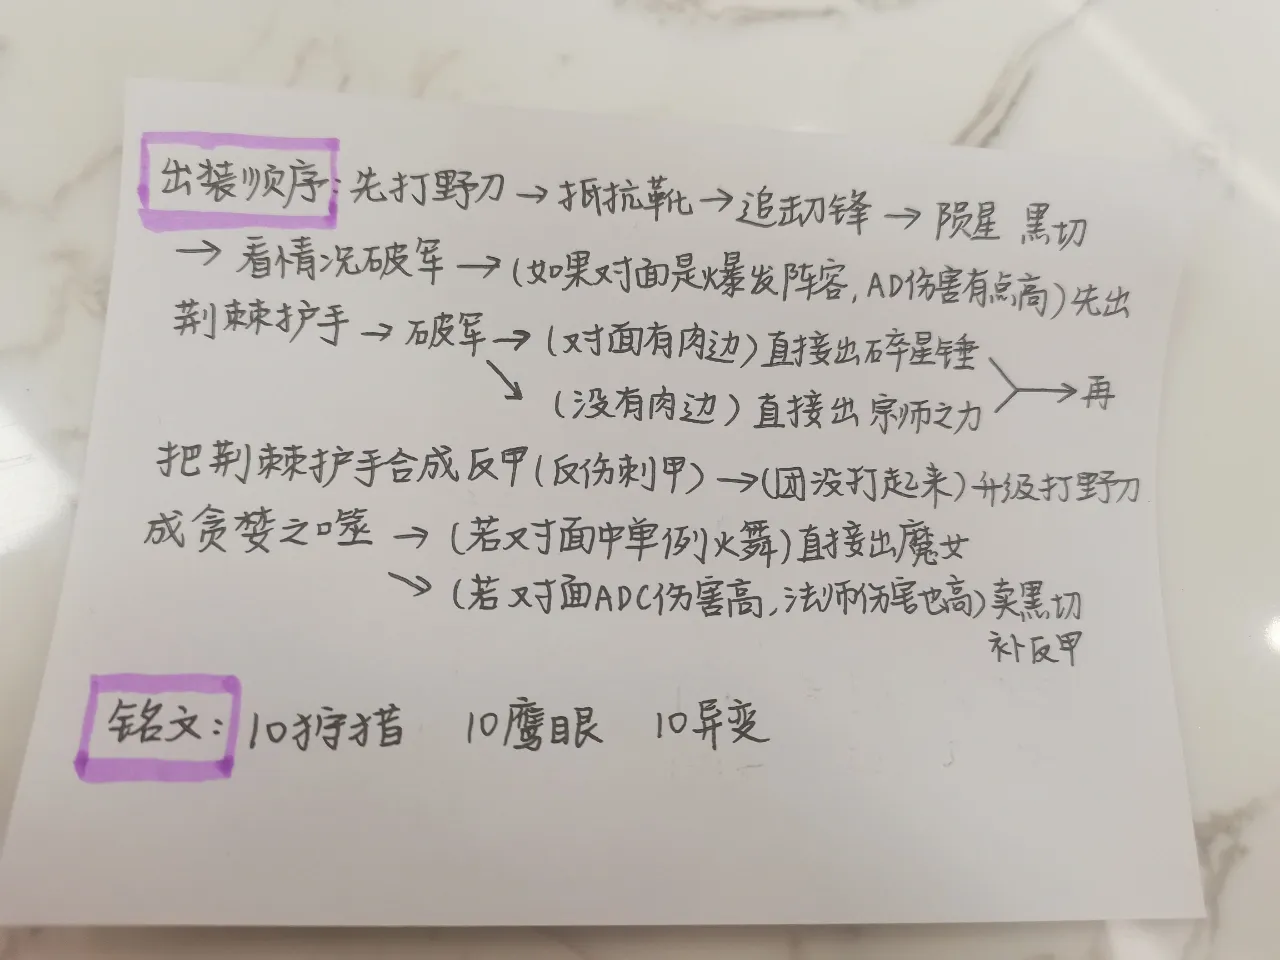 出装顺序：先打野刀→抵抗靴→追击刀锋→陨星 黑切
→看情况破军→(如果对面是爆发阵容,AD伤害有点高)先出
荆棘护手→破军→(对面有肉边)直接出碎星锤
↘(没有肉边)直接出宗师之力→再
把荆棘护手合成反甲(反伤刺甲)→(团没打起来)升级打野刀
成贪婪之噬→(若对面中单例火舞)直接出魔女
↘(若对面ADC伤害高,法师伤害也高)卖黑切
补反甲
铭文：10狩猎 10鹰眼 10异变